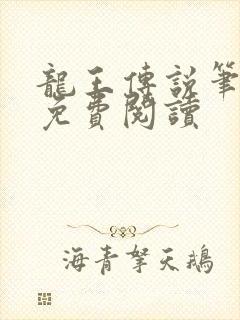 龍王傳說筆
免費閱讀
海青拏天鵝